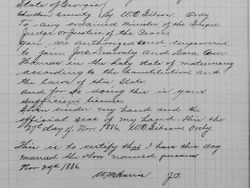 State of Georgia
County By W.C. Gibson Ordy
To any ordained minister of the Gospel
Judge or Justice of the Peace
You are authorized and empowered
to Join and
Thomas in the holy state of matrimony
according to the Constitution and
the Laws of this State
and for so doing this is your
sufficient license
Given under my hand and the
official seal of my hand this the
29th day of Nov. 1886. W.C. Gibson Ordy.
This is to certify that I have this day
married the above named persons
Nov 29th 1886
J.P.